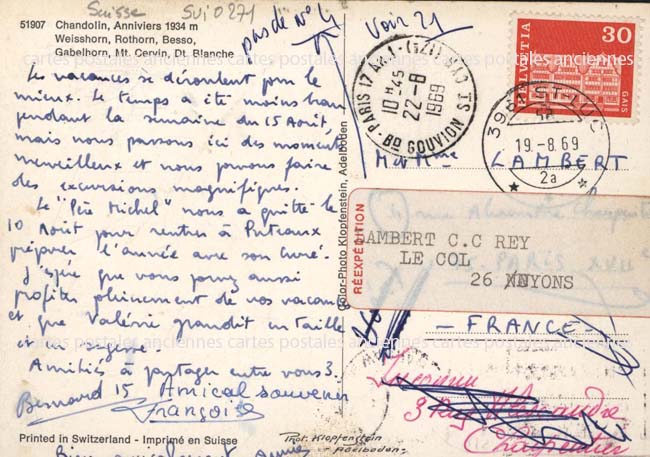 Suisse
SUI0271
51907 Chandolin, Anniviers 1934 m
Weisshorn, Rothorn, Besso,
Gabelhorn, Mt. Cervin, Dt. Blanche
pas de N° 4
Voir 21
Les vacances se déroulent pour le
mieux. Le temps a été moins beau
pendant la semaine du 15 Août,
mais nous passons ici des moments
merveilleux et nous pouvons faire
des excursions magnifiques.
Le "Père Michel" nous a quitté le
10 Août pour rentrer à Puteaux
préparer l'année avec son curé.
J'espère que vous pouvez aussi
profiter pleinement de vos vacances
et que Valérie grandit en taille
et en sagesse.
Amitiés à partager entre vous 3.
Bernard 15 Amical souvenir
François
Printed in Switzerland - Imprimé en Suisse
Bien amicalement
Color-Photo Klopfenstein, Adelboden
Phot. Klopfenstein
Adelboden
PARIS 17 AR.T - (121)
10 H 45
22-8
1969
Bd GOUVION ST CYR
HELVETIA
30
GAIS
ST-LUC
19.-8.69
2a
M. et Mme LAMBERT
RÉEXPÉDITION
LAMBERT C.C REY
LE COL
26 NYONS
PARIS XVII
- FRANCE -
Inconnu
3 Rue Alexandre
Charpentier
cartes postales anciennes cartes postales anciennes cartes postales anciennes